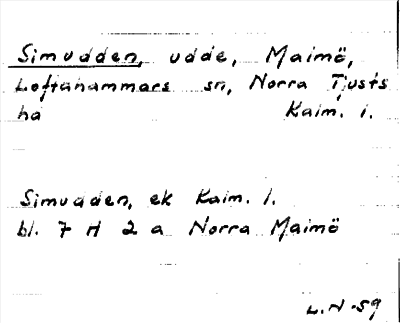 Simudden, udde, Maimö,
Loftahammars sn, Norra Tjusts
hd Kalm. l.
Simudden, ek Kalm. l.
bl. 7 H 2 a Norra Maimö
L.N-59